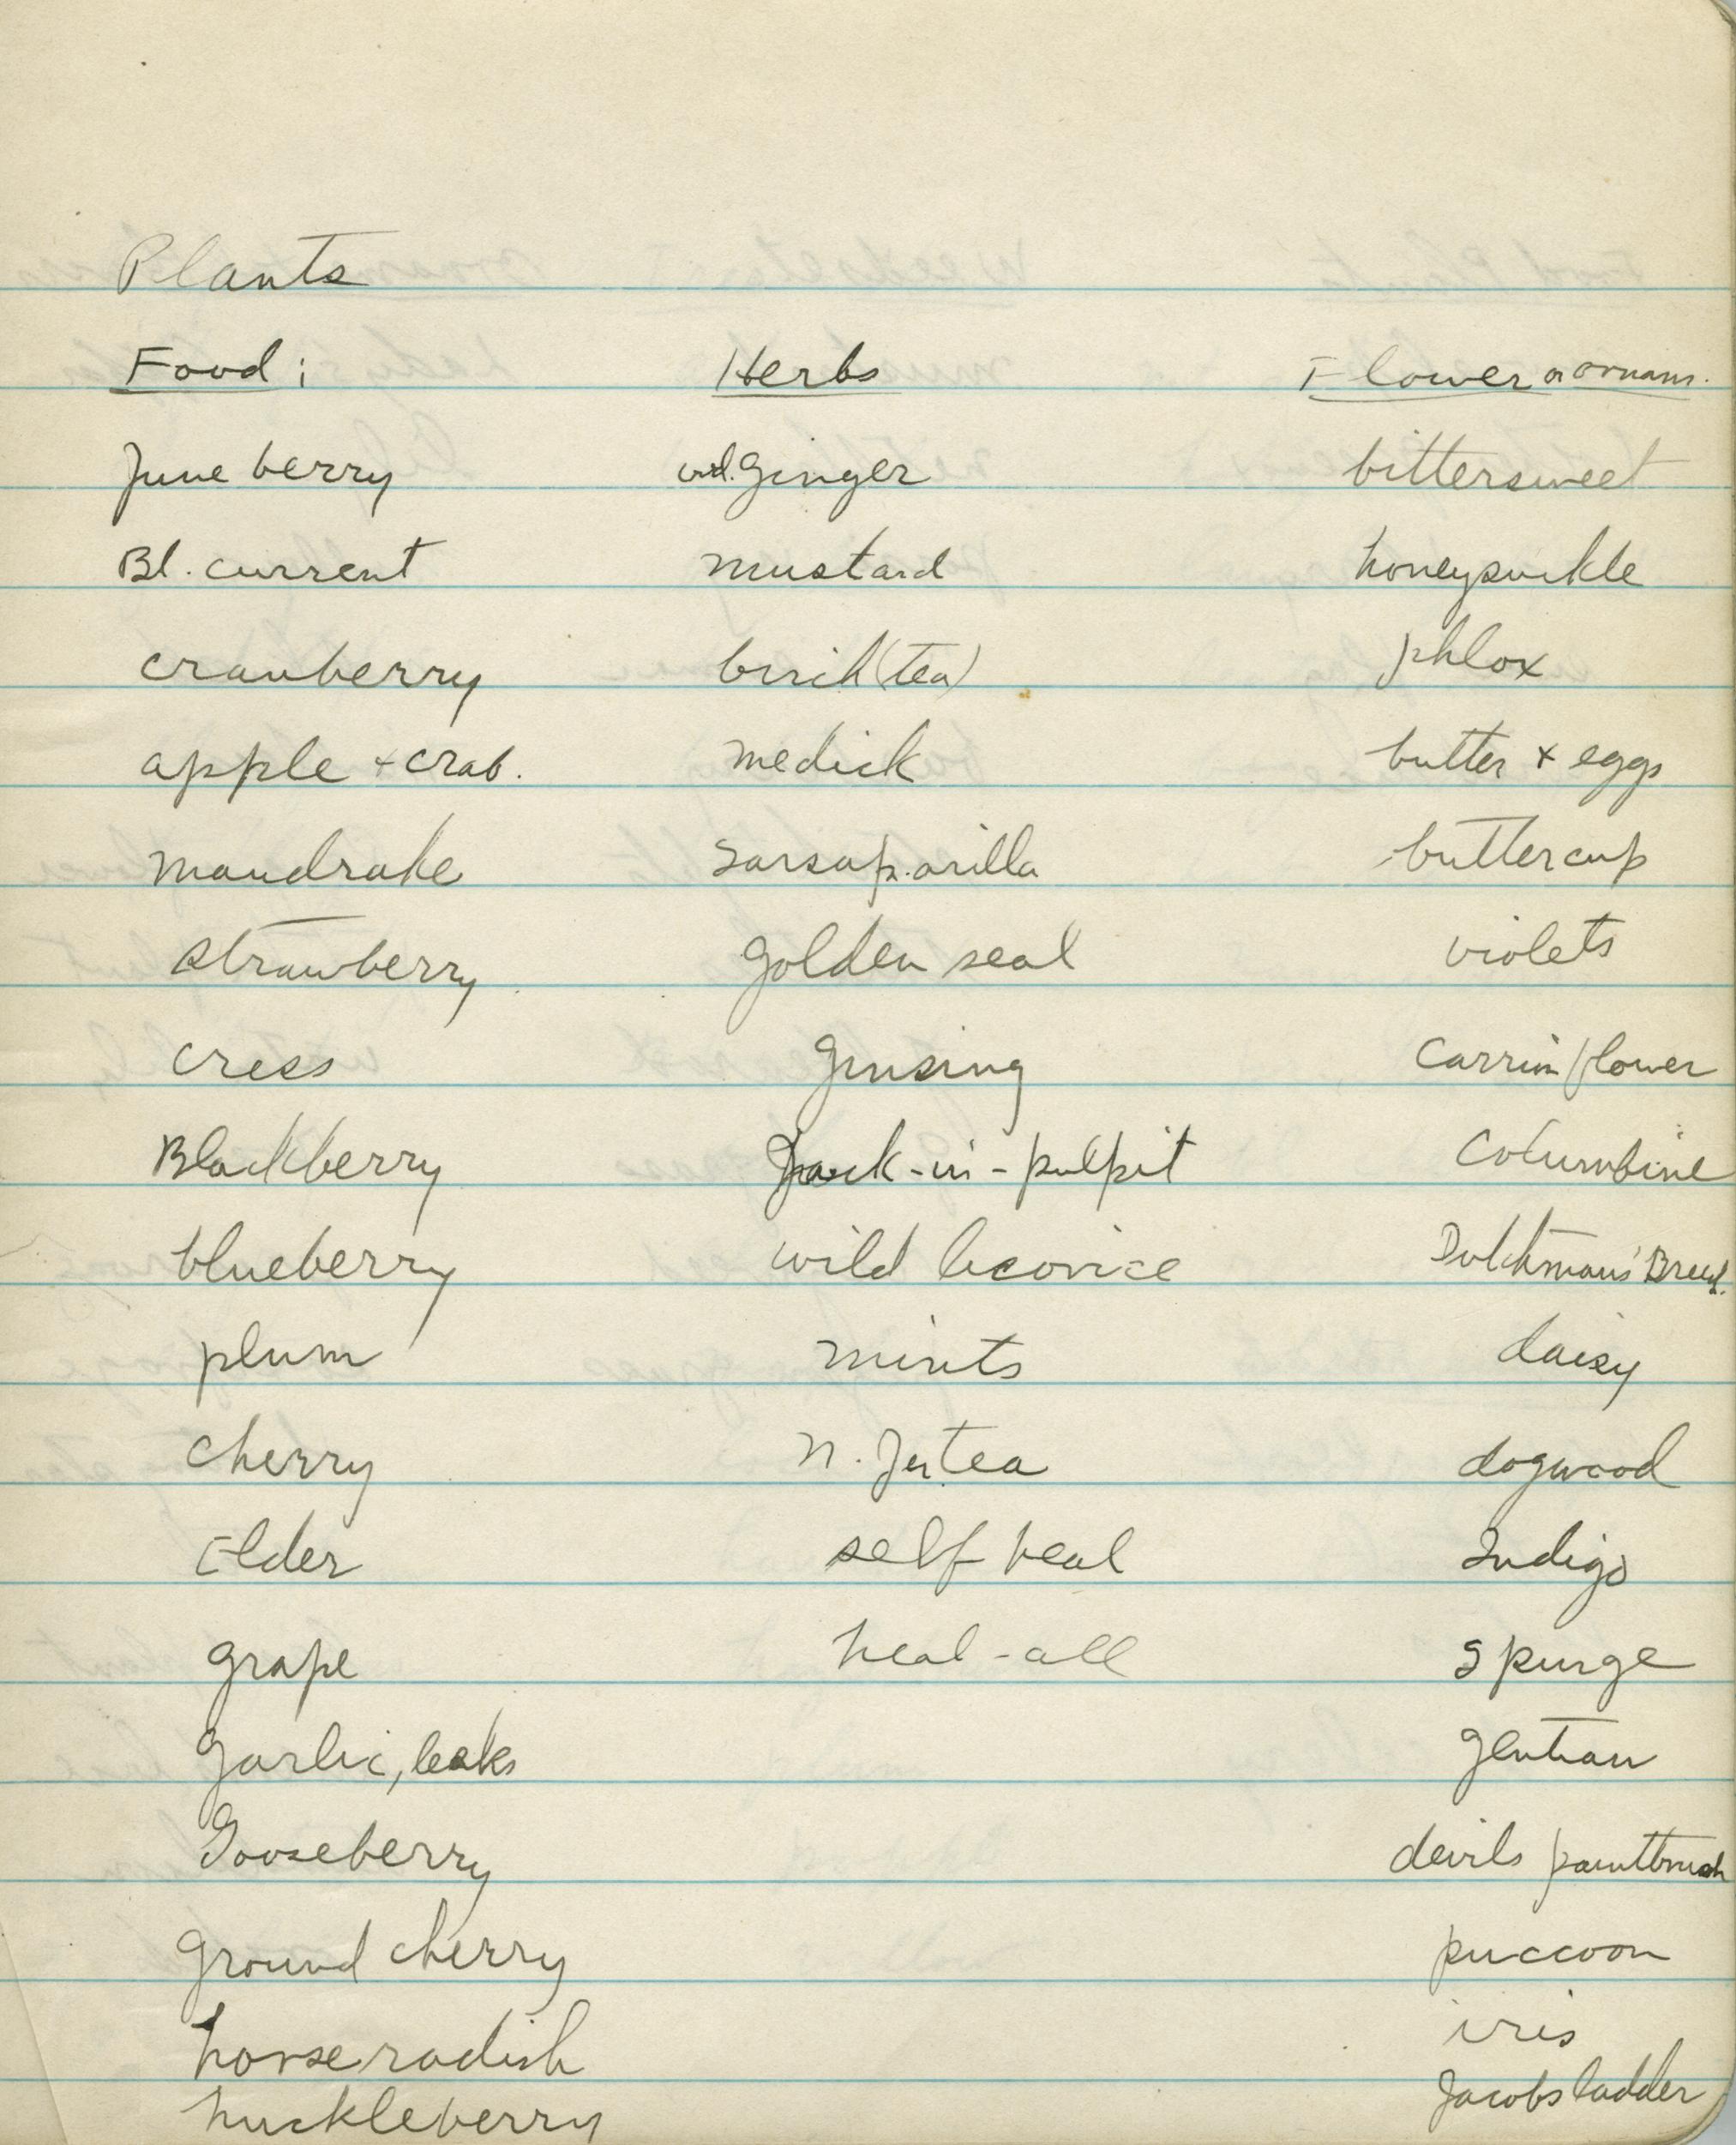 Plants
Food: Herbs Flower or ornam.
June berry wd. ginger bittersweet
Bl. current mustard honeysuckle
cranberry birch (tea) phlox
apple + crab. medick butter + eggs
mandrake sarsaparilla buttercup
strawberry golden seal violets
cress ginsing Carrion flower
Blackberry Jack-in-pulpit Columbine
blueberry wild licorice Dutchmans' Breech.
plum mints daisy
cherry N. Jer. tea dogwood
Elder self heal Indigo
grape heal-all spurge
garlic, leeks gentian
Gooseberry devils paintbrush
ground cherry puccoon
horse radish iris
huckleberry Jacobs ladder